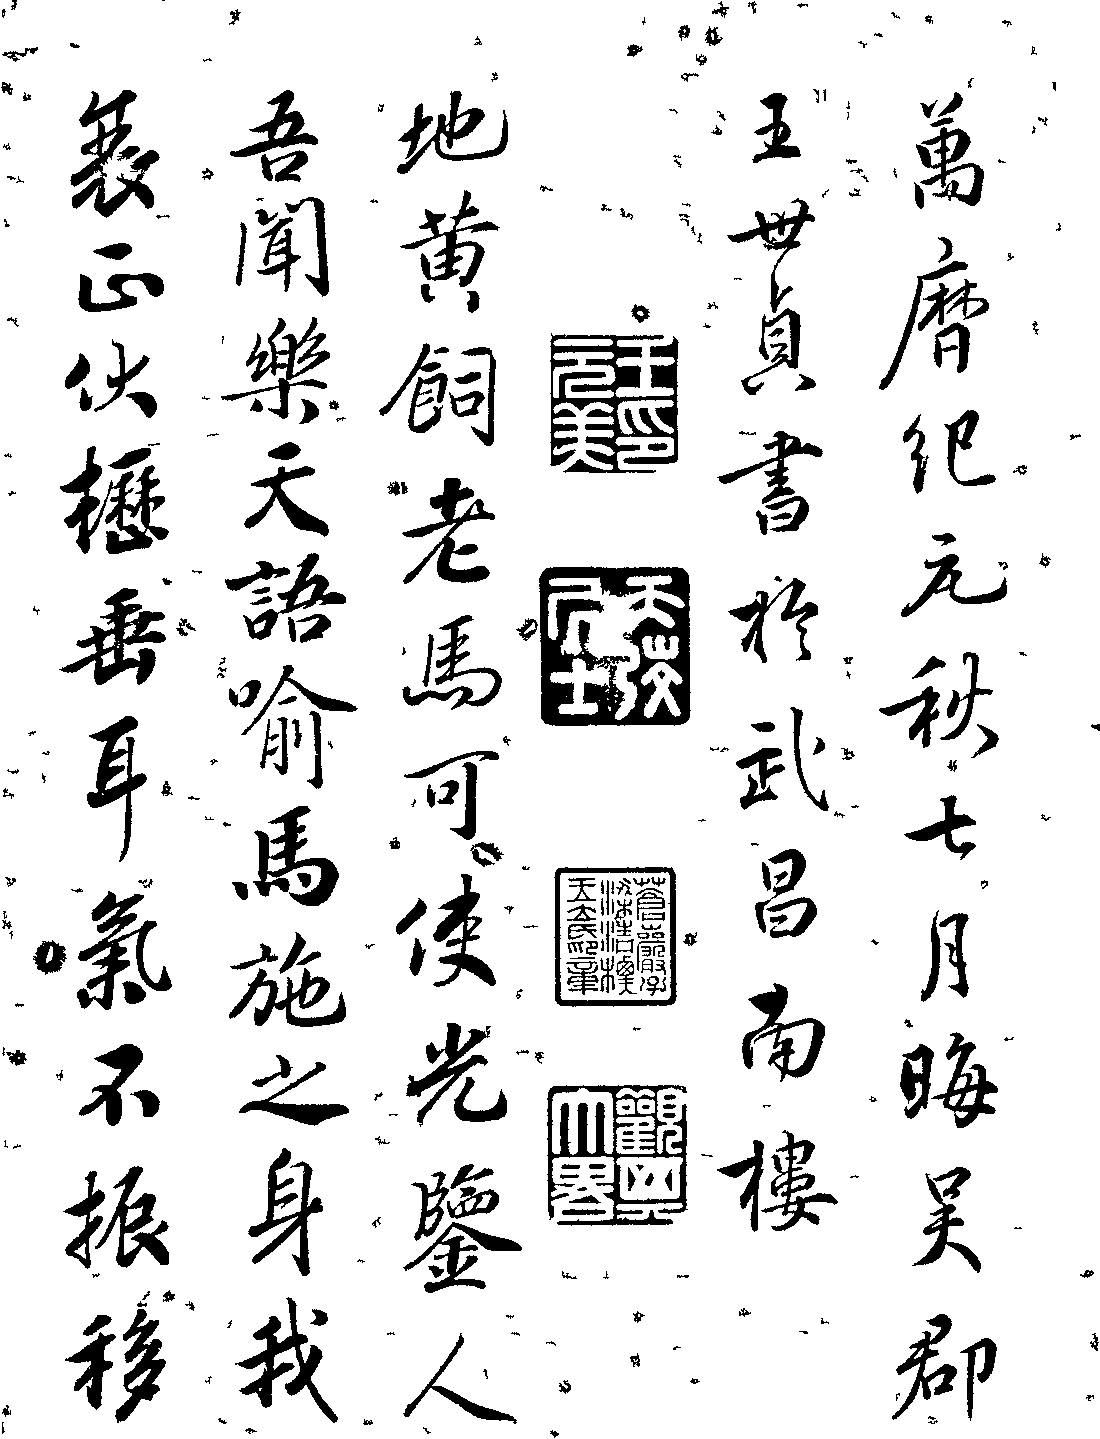 萬曆紀元秋七月晦吴郡
王世貞書於武昌南樓
王印元美
天弢居士
地黄飼老馬可使光鑒人
吾聞樂天語喻馬施之身我
衰正伏櫪垂耳氣不振移